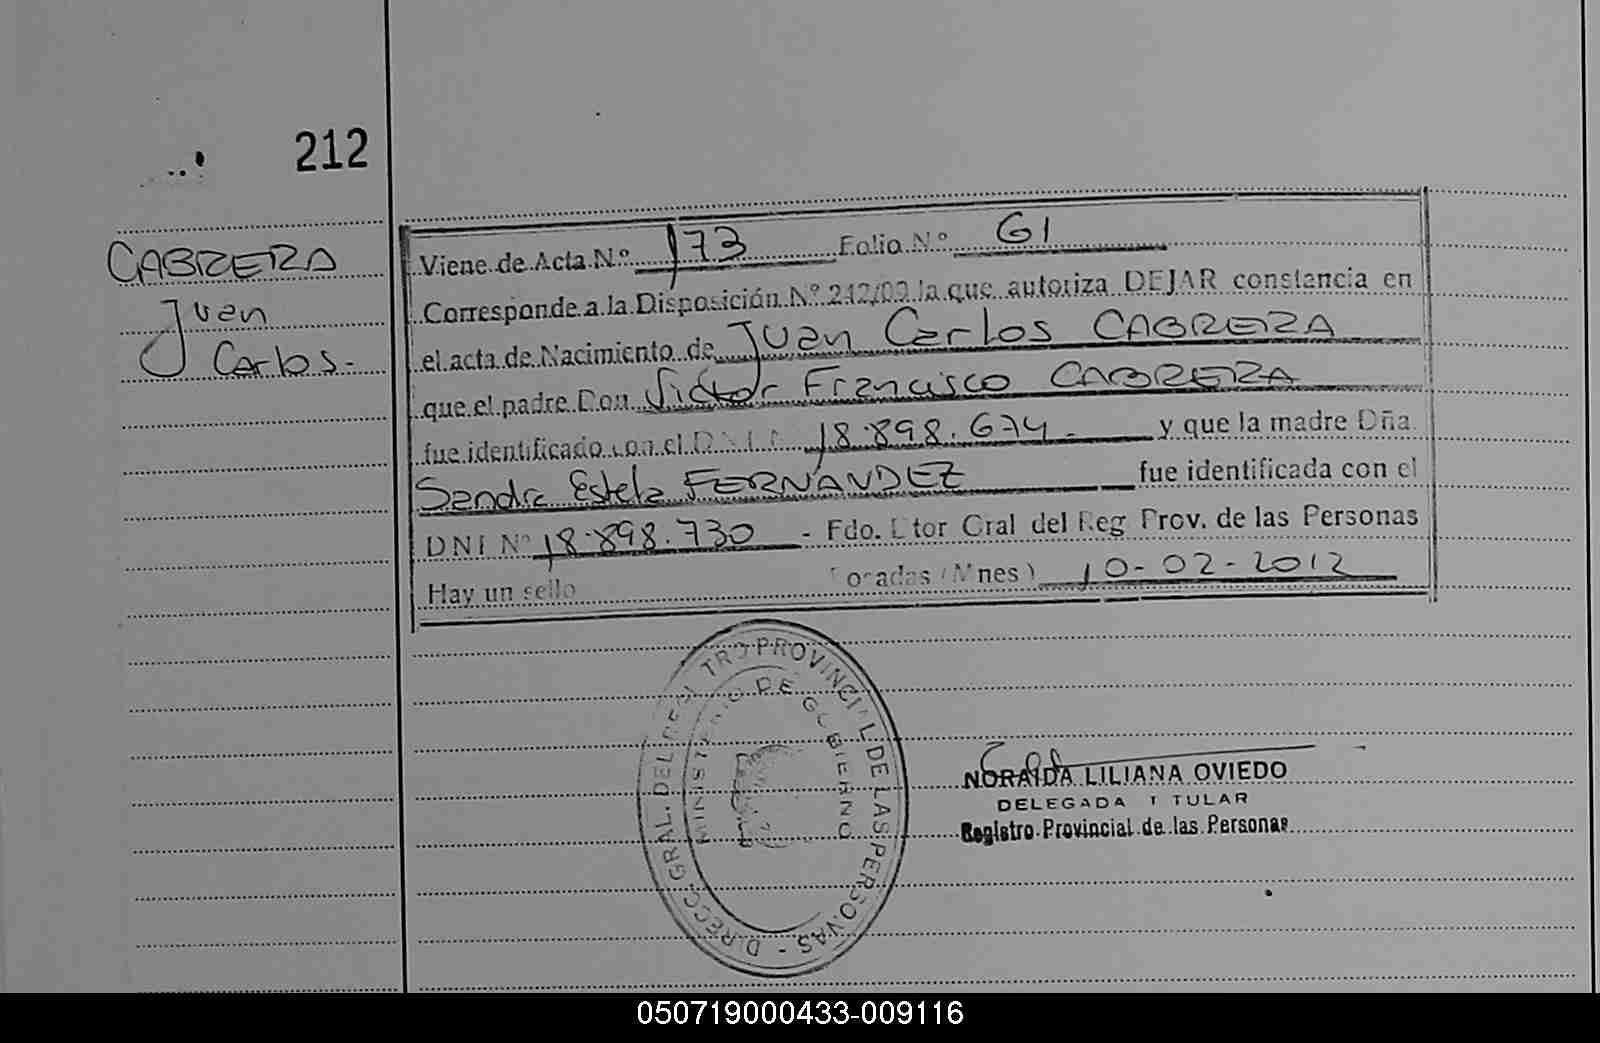 212
CABRERA
Juan
Carlos.-
Viene de Acta N° 173 Folio N° 61
Corresponde a la Disposición N° 242/09 la que autoriza DEJAR constancia en
el acta de Nacimiento de Juan Carlos CABRERA
que el padre Don Victor Francisco CABRERA
fue identificado con el D.N.I. 18.898.674.- y que la madre Dña.
Sandra Estela FERNANDEZ fue identificada con el
DNI N° 18.898.730 - Fdo. Dtor Gral del Reg Prov. de las Personas
Hay un sello Posadas (Mnes) 10-02-2012
DIRECC. GRAL. DEL REGISTRO PROVINCIAL DE LAS PERSONAS -
MINISTERIO DE GOBIERNO
NORAIDA LILIANA OVIEDO
DELEGADA TITULAR
Registro Provincial de las Personas
050719000433-009116